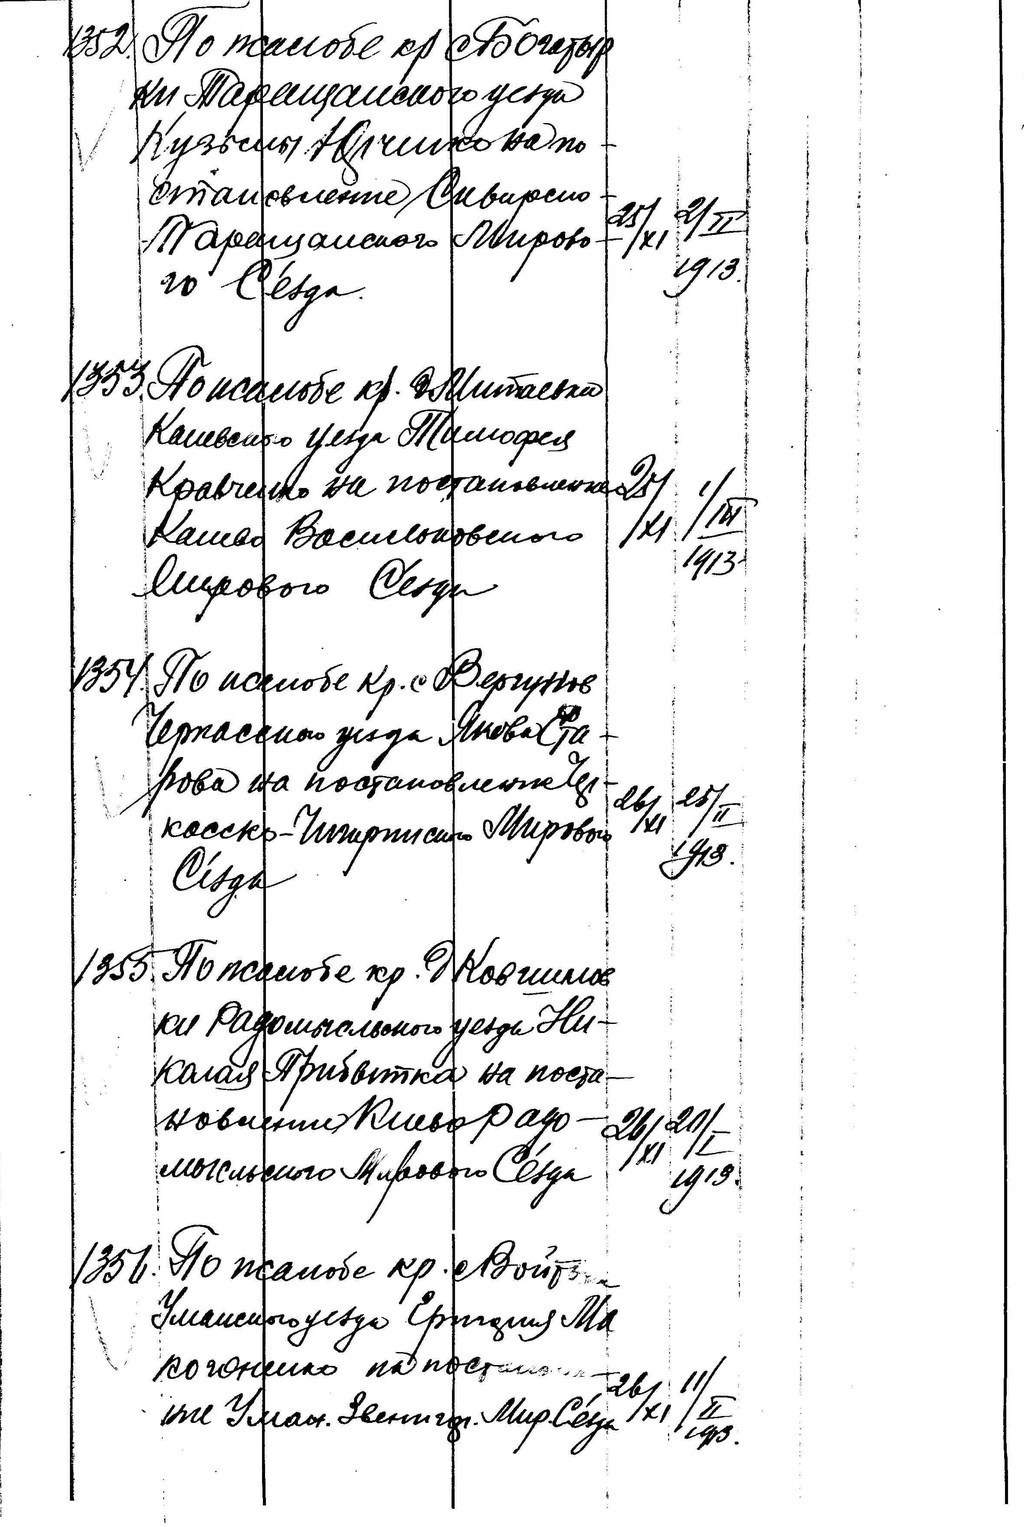 1352. По жалобе кр. с Богатыр
ки Таращанского уезда
Кузьмы на по-
становление Сквирско-
Таращанского Мирово-
го Съезда.
25/XI 2/II
1913.
1353. По жалобе кр. д.
Каневского уезда Тимофея
Кравченко на постановление
Канево Васильковского
Мирового Съезда
25/XI 1/III
1913
1354. По жалобе кр. с Вергунов
Черкасского уезда Якова Ста-
рова на постановление Чер-
касско-Чигиринского Мирового
Съезда
26/XI 25/II
1913.
1355. По жалобе кр. д
ки Радомысльского уезда Ни-
колая Прибытка на поста-
новление Киево Радо-
мысльского Мирового Съезда
26/XI 20/I
1913.
1356. По жалобе кр. с
Уманского уезда Ма
когоненко на
ние Уман. Звенигор. Мир. Съезда
26/XI 11/II
1913.